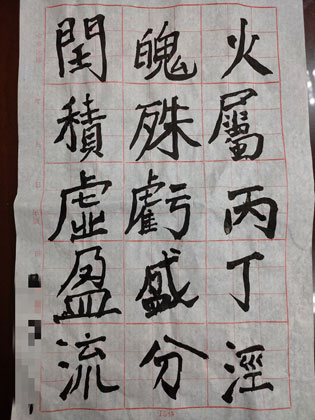 火屬丙丁涇
魄殊虧盛分
閏積虛盈流